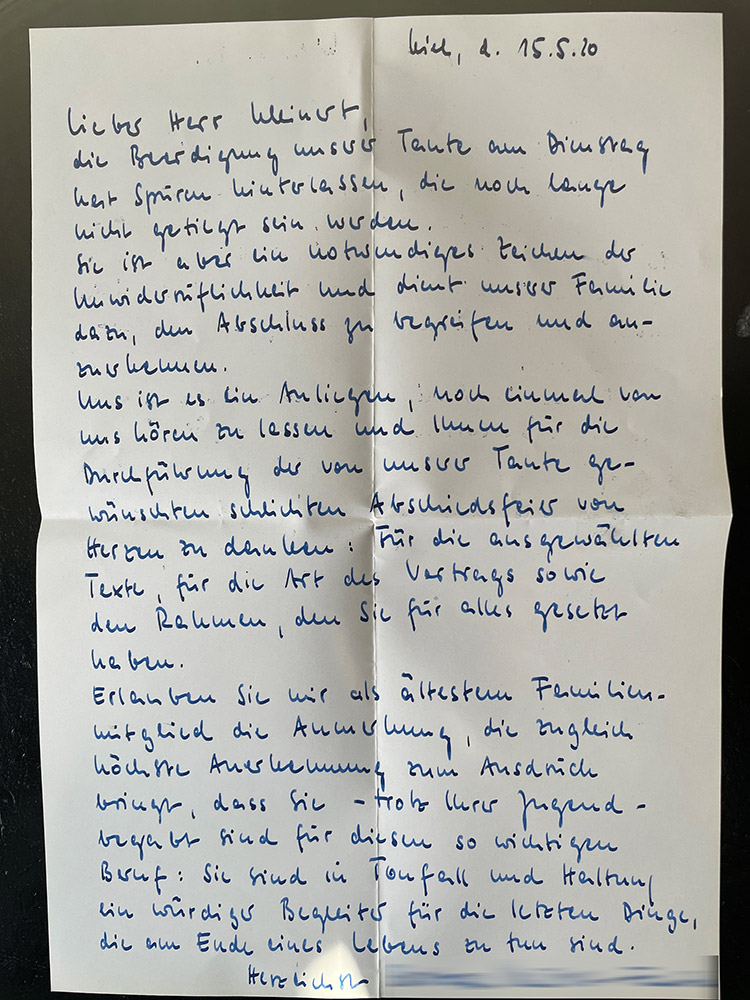 Kiel, d. 15.5.20
Lieber Herr Kleinert,
die Beerdigung unserer Tante am Dienstag
hat Spuren hinterlassen, die noch lange
nicht getilgt sein werden.
Sie ist aber ein notwendiges Zeichen der
Unwiderruflichkeit und dient unserer Familie
dazu, den Abschluss zu begreifen und an-
zuerkennen.
Uns ist es ein Anliegen, noch einmal von
uns hören zu lassen und Ihnen für die
Durchführung der von unserer Tante ge-
wünschten schlichten Abschiedsfeier von
Herzen zu danken: Für die ausgewählten
Texte, für die Art des Vortrags sowie
den Rahmen, den Sie für alles gesetzt
haben.
Erlauben Sie mir als ältestem Familien-
mitglied die Anmerkung, die zugleich
höchste Anerkennung zum Ausdruck
bringt, dass Sie – trotz Ihrer Jugend –
begabt sind für diesen so wichtigen
Beruf: Sie sind in Tonfall und Haltung
ein würdiger Begleiter für die letzten Dinge,
die am Ende eines Lebens zu tun sind.
Herzlichst